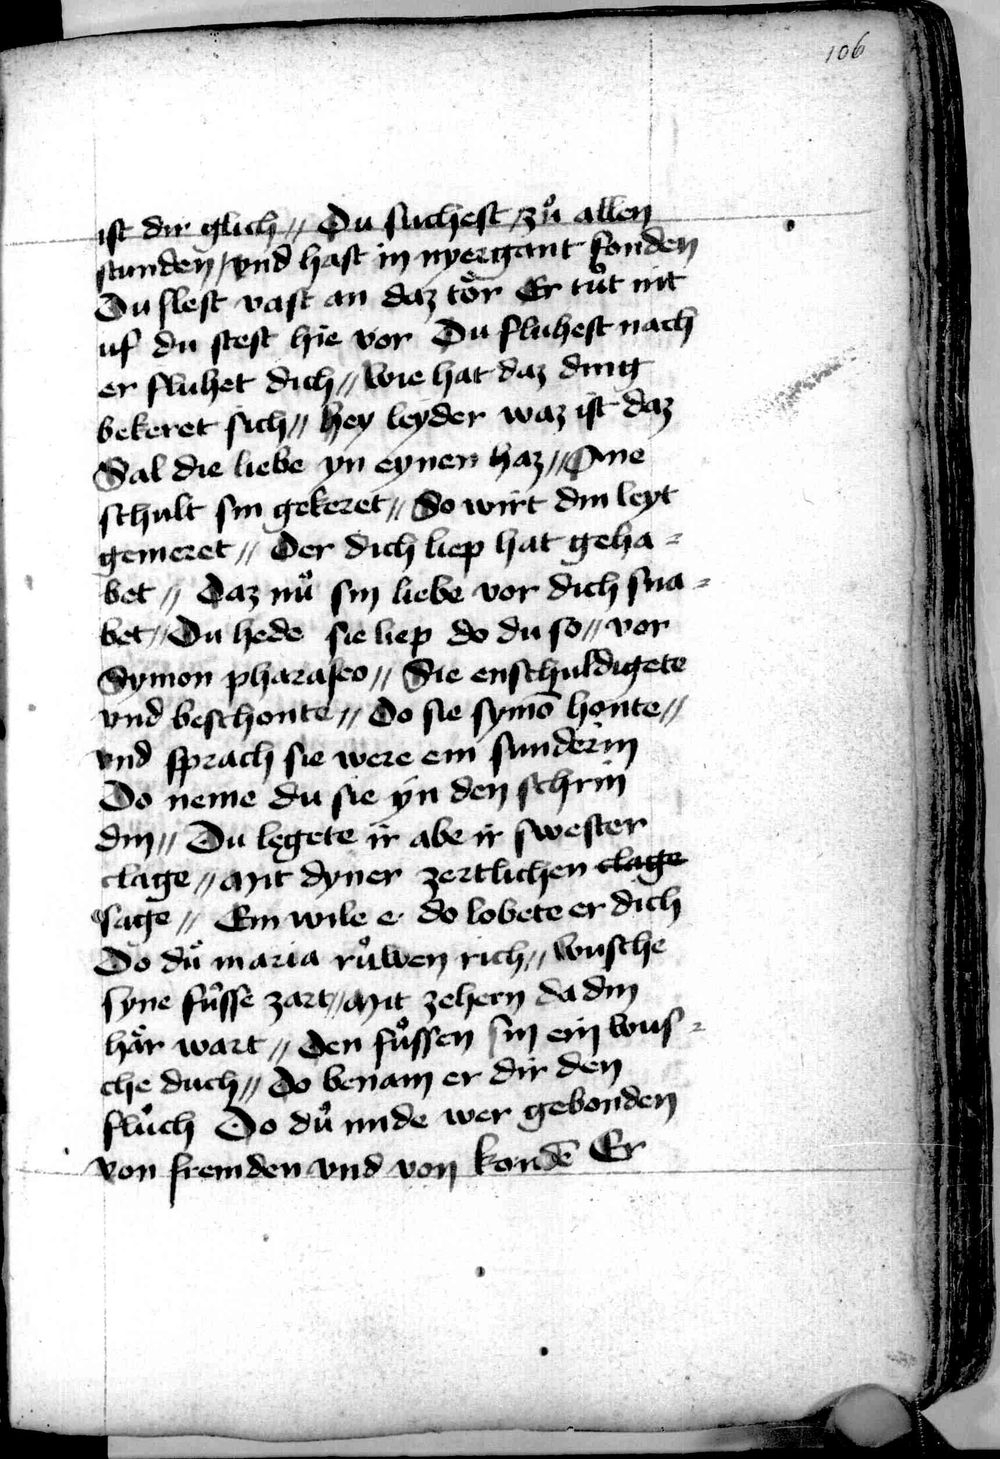 106
ist dir glich // Du suchest / zuͦ allen
stunden / vnd hast in nyergant fonden
Du slest vast an daz toͤr Er tuͦt nit
uf du stest hie vor Du fluhest nach
er fluhet dich // wie hat daz ding
bekeret sich // hey leyder waz ist daz
Sal die liebe yn eynen haz // One
schult sin gekeret // So wirt din leyt
gemeret // Der dich liep hat geha =
bet // Daz nuͦ sin liebe vor dich sna =
bet // Du hede sie liep do du so // vor
Symon pharaseo // Sie enschuldigete
vnd beschonte // Do sie symō honte //
vnd sprach sie were ein sunderin
Do neme du sie yn den schrin
din // Du legete ir abe ir swester
clage // Mit dyner zertlichen clage
sage // Ein wile e do lobete er dich
Do duͦ maria ruͦwen rich // wusche
syne fuͤsse zart // Mit zehern da din
haͤr wart // Den fuͦssen sin ein wus =
che duch // Do benam er dir den
fluͦch Do duͦ unde wer gebonden
von fremden vnd von kondē Er